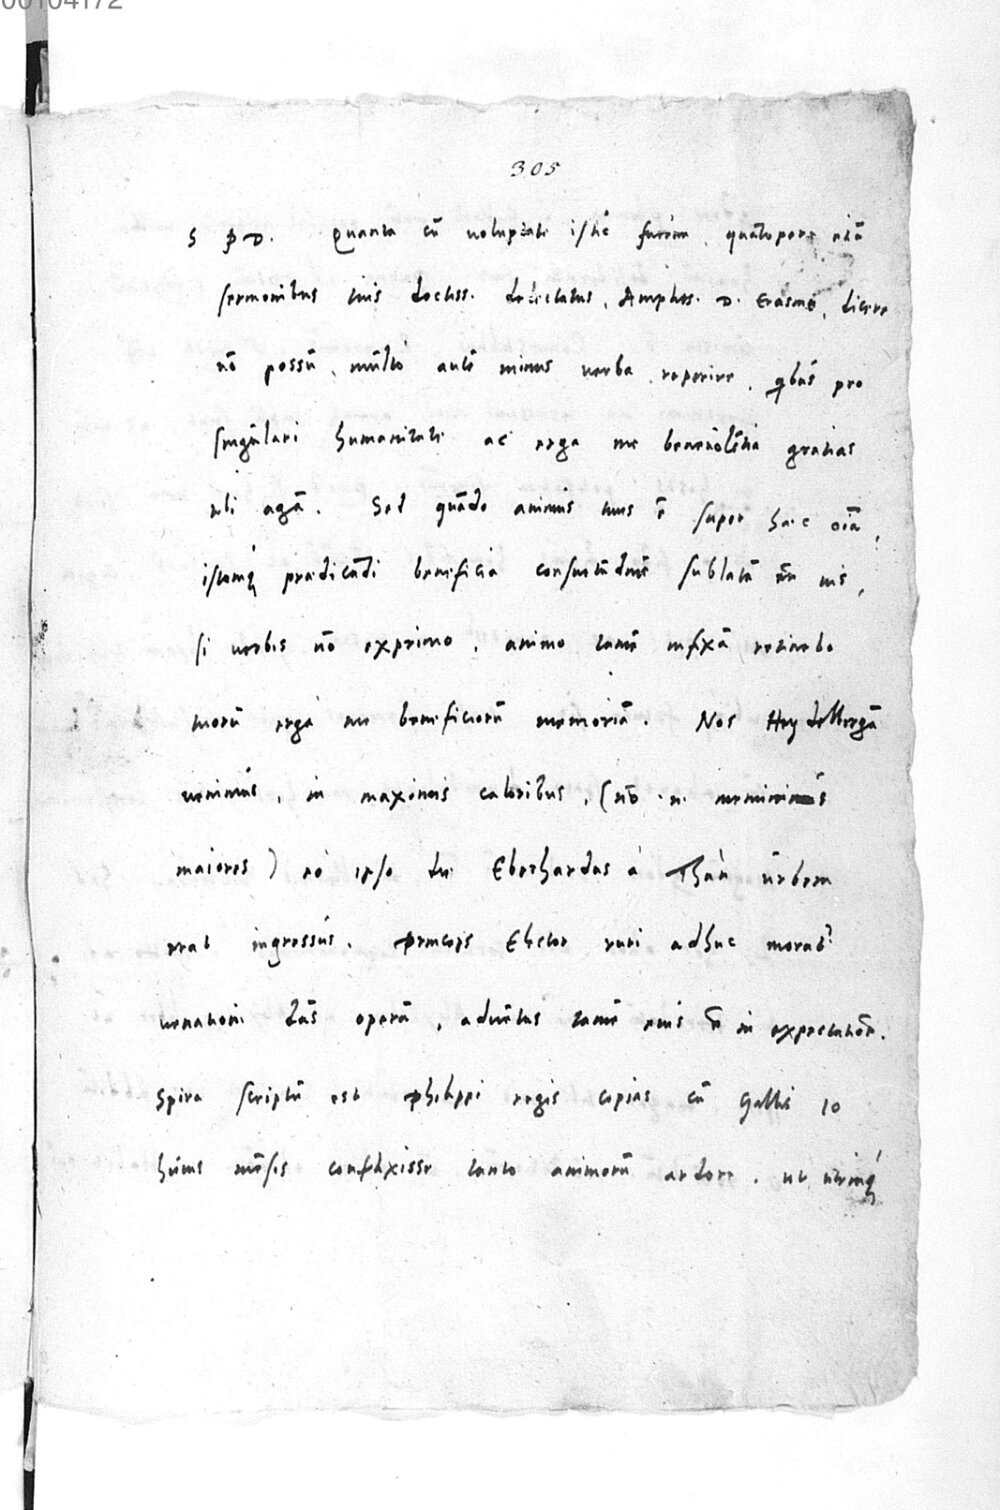 00104172
305
S P D. Quanta cū voluptate istic fuerim, quātopere etiā
sermonibus tuis doctiss. delectatus, Ampliss. D. Erasme, dicere
nō possū, multo autē minus verba reperire, qbus pro
singulari humanitate ac erga me benevolētia gratias
tibi agā. Sed quādo animus tuus ē super haec oīa,
istamq̃ praedicādi beneficia consuetudinē sublatā vis,
si verbis nō exprimo, animo tamē infixā retinebo
tuorū erga me beneficiorū memoriā. Nos Heydelbergā
venimus, in maximis caloribus, (nō .n. meminimus
maiores) eo ipso die Eberhardus à Than urbem
erat ingressus. Princeps Elector ruri adhuc morat
venationi dās operā, advētus tamē eius ē in expectatiōe.
Spira scriptū est Philippi regis copias cū Gallis 10
huius mēsis conflixisse tanto animorū ardore, ut utrinq̃